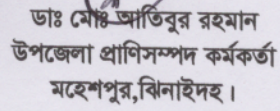 ডাঃ মোঃ আতিবুর রহমান
উপজেলা প্রাণিসম্পদ কর্মকর্তা
মহেশপুর,ঝিনাইদহ।